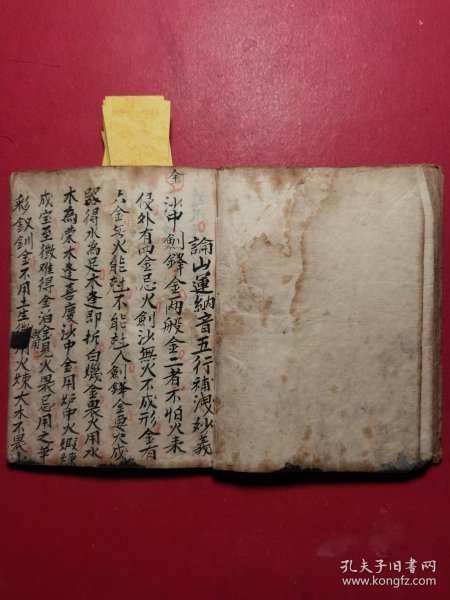 論山運納音五行補洩妙義
金 沙中劍鋒金兩般金二者不怕火來
侵外有四金忌火劍沙無火不成形金有
六金 火能尅不能尅入劍鋒金要火成
器得水為足木逢即折白蠟金畏火用水
木為荣木逢喜慶沙中金用炉中火煅煉
成宝至微難得金泊金見火畏忌用之華
彩釵釧金不用土生 用火煉大木不畏
孔夫子旧书网
www.kongfz.com